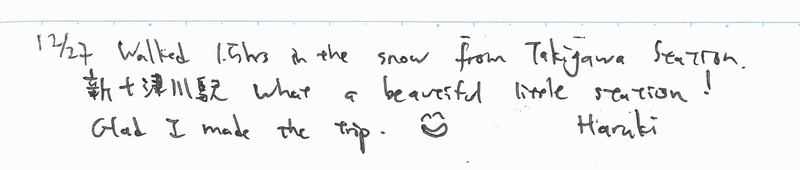 12/27 Walked 1.5hrs in the snow from Takigawa Station.
新十津川駅 What a beautiful little station!
Glad I made the trip. Haruki